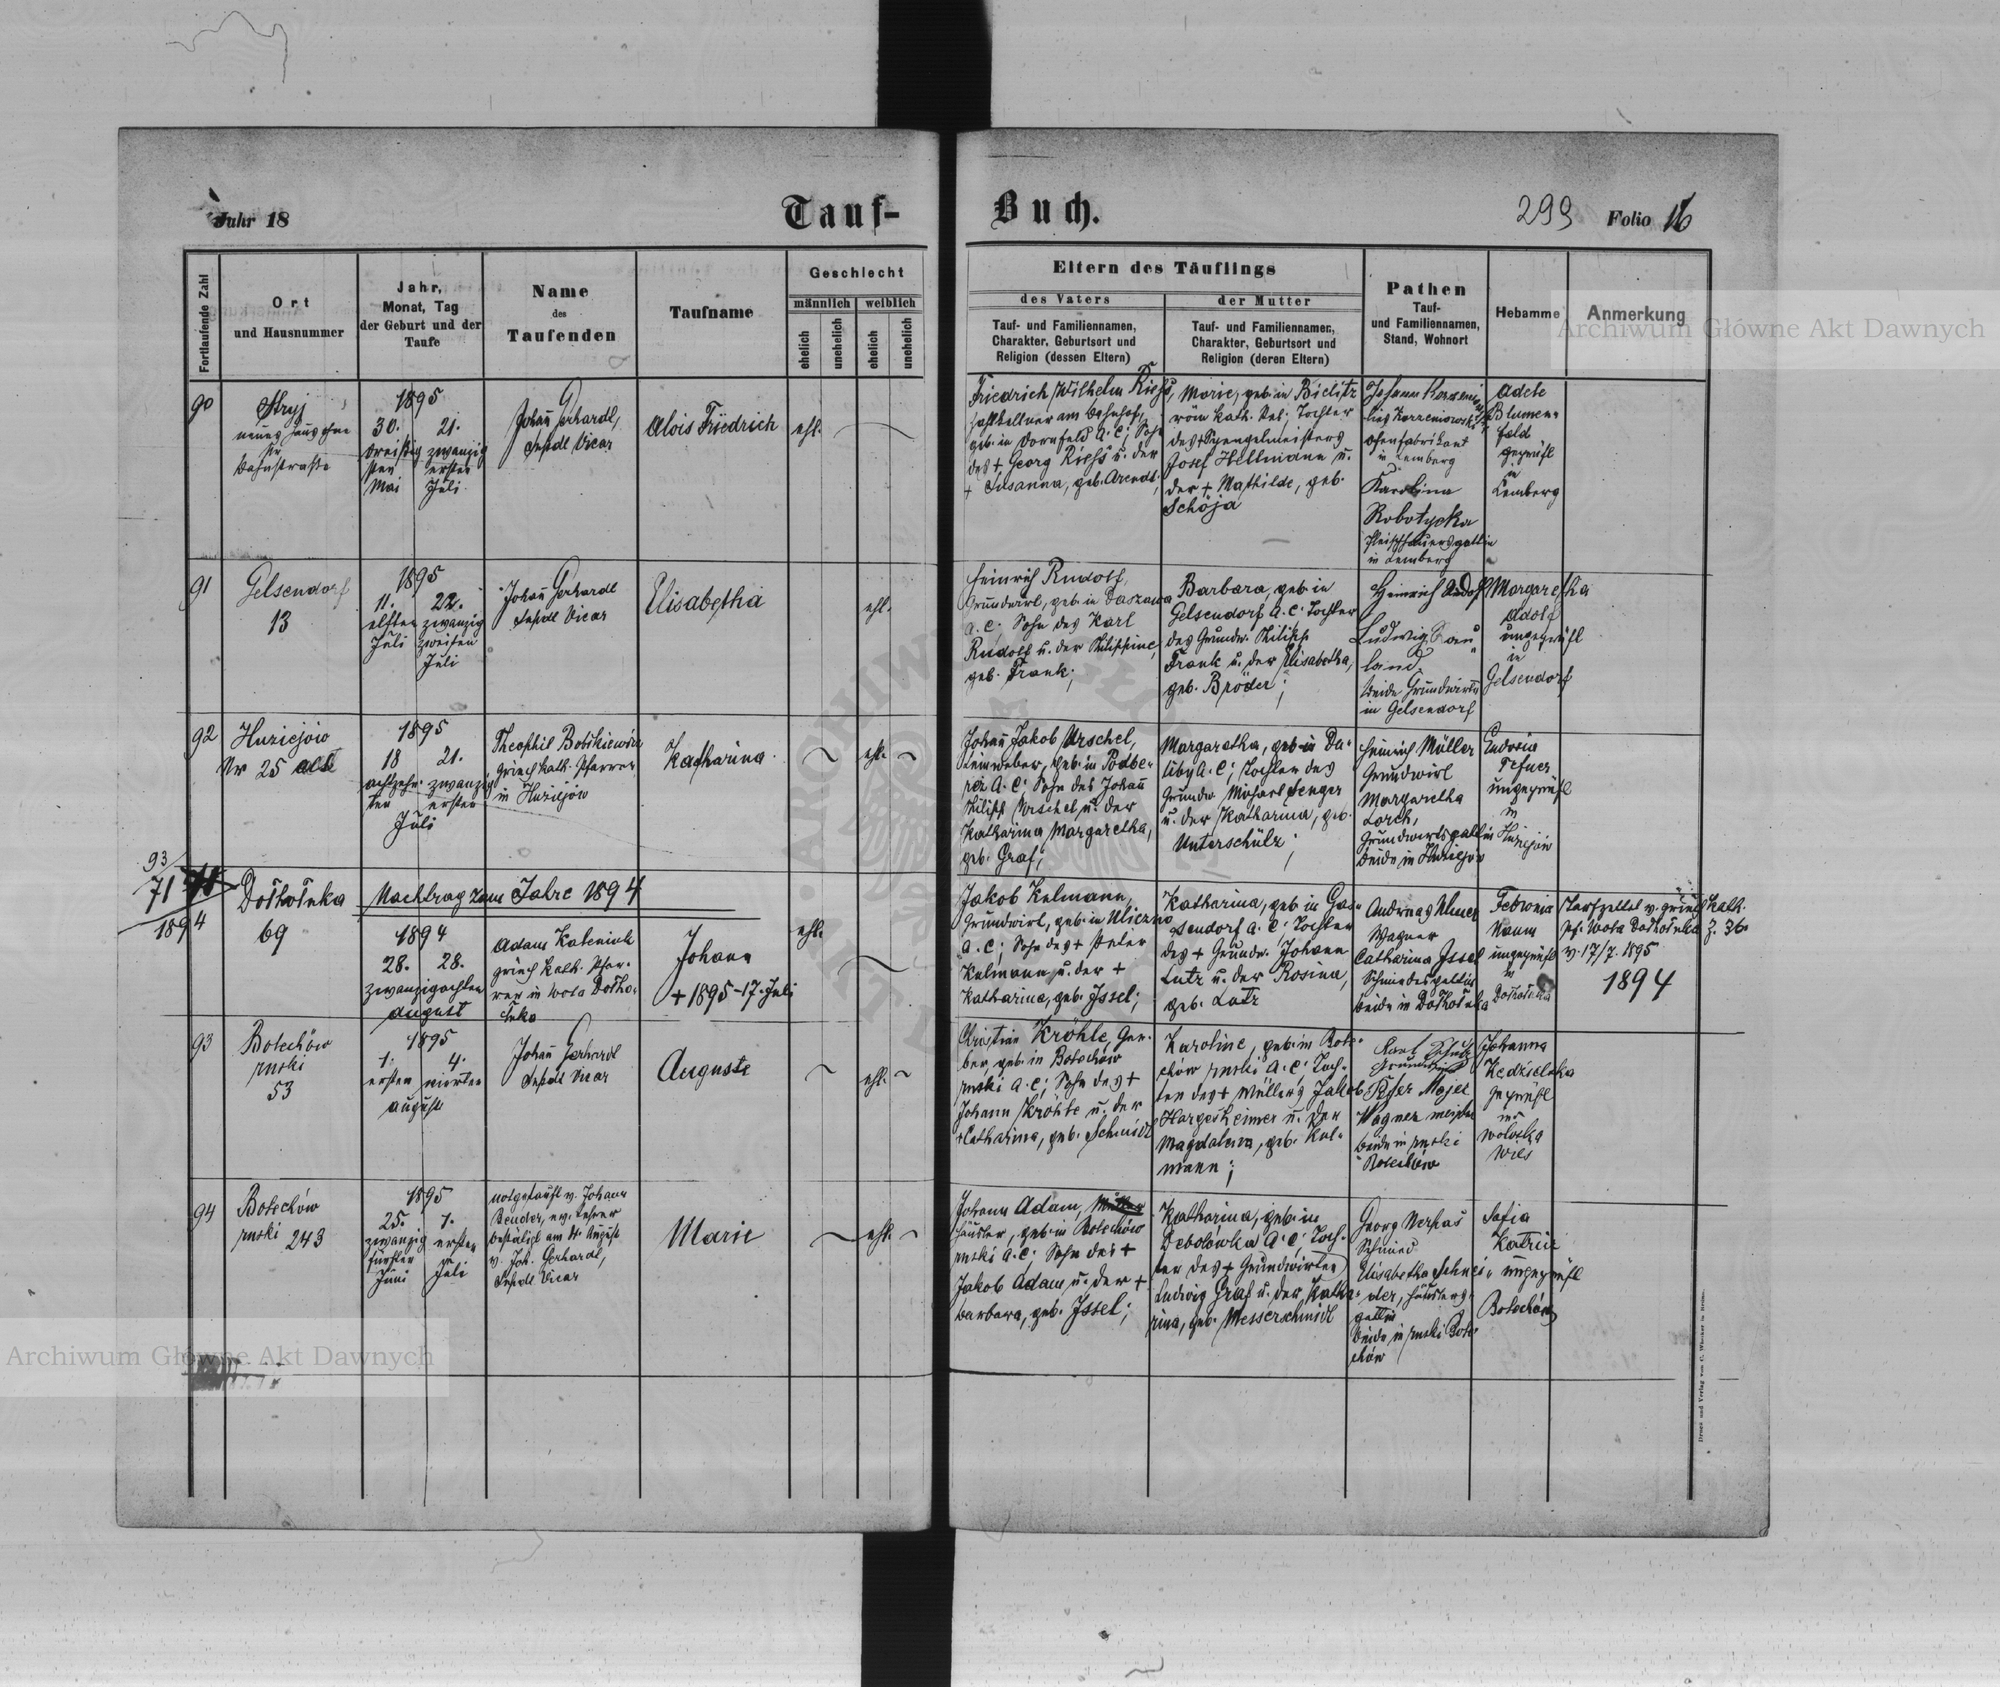 Jahr 18
Tauf-
Buch.
299 Folio 16
Fortlaufende Zahl
Ort
und Hausnummer
Jahr,
Monat, Tag
der Geburt und der
Taufe
Name
des
Taufenden
Taufname
Geschlecht
männlich
weiblich
ehelich
unehelich
ehelich
unehelich
Eltern des Täuflings
des Vaters
Tauf- und Familiennamen,
Charakter, Geburtsort und
Religion (dessen Eltern)
der Mutter
Tauf- und Familiennamen,
Charakter, Geburtsort und
Religion (deren Eltern)
Pathen
Tauf-
und Familiennamen,
Stand, Wohnort
Hebamme
Anmerkung
Archiwum Główne Akt Dawnych
90
Stryj
neues Haus ohne
Nr
Bahnstraße
1895
30. 21.
dreißig zwanzig
sten ersten
Mai Juli
Johann Gerhardt,
Vicar
Alois Friedrich
ehl.
Friedrich Wilhelm Rieß,
am Bahnhof,
geb. in Dornfeld A. C; Sohn
des + Georg Rieß u. der
+ Susanna, geb. Arendt;
Marie, geb. in Bielitz
röm. kath. Rel; Tochter
des + Spenglermeisters
Josef Hellmann u.
der + Mathilde, geb.
Schöja
Johann
Ofenfabrikant
in Lemberg
Karolina
Robotycka
Fleischhauersgattin
in Lemberg
Adele
Blumen-
feld
geprüft
in
Lemberg
91
Gelsendorf
13
1895
11. 22.
elften zwanzig
Juli zweiten
Juli
Johann Gerhardt
Vicar
Elisabetha
ehl.
Heinrich Rudolf,
Grundwirt, geb. in Daszawa
A. C; Sohn des Karl
Rudolf u. der Philippine,
geb. Frank;
Barbara, geb. in
Gelsendorf A. C; Tochter
des Grundw. Philipp
Frank u. der Elisabetha,
geb. Bröder;
Heinrich Adolf
Ludwig Sau-
land,
beide Grundwirte
in Gelsendorf
Margaretha
Adolf
ungeprüft
in
Gelsendorf
92
Huziejów
Nr 25 alt
1895
18 21.
achtzehn zwanzig
ten ersten
Juli
Theophil
griech. kath. Pfarrer
in Huziejów
Katharina
ehl.
Johann Jakob Urschel,
Leinweber, geb. in Podbe-
rez A. C; Sohn des Johann
Philipp Urschel u. der
Katharina Margaretha,
geb. Graf;
Margaretha, geb. in Da-
liby A. C; Tochter des
Grundw. Michael Senger
u. der Katharina, geb.
Unterschütz;
Heinrich Müller
Grundwirt
Margaretha
Lorch,
Grundwirtsgattin
beide in Huziejów
Eudosia
ungeprüft
in
Huziejów
93
71
1894
Dołhołuka
69
Nachtrag zum Jahre 1894
1894
28. 28.
zwanzigachten
August
Adam Kateniuk
griech. kath. Pfar-
rer in Wola Dołho-
łuka
Johann
+ 1895-17. Juli
ehl.
Jakob Kulmann,
Grundwirt, geb. in Uliczno
A. C; Sohn des + Peter
Kulmann u. der +
Katharina, geb. Issel;
Katharina, geb. in Gas-
sendorf A. C; Tochter
des + Grundw. Johann
Lutz u. der Rosina,
geb. Lutz
Andreas Ulmer
Wagner
Catharina Issel
Schmiedesgattin
beide in Dołhołuka
Febronia
Naum
ungeprüft
in
Dołhołuka
Taufzettel v. griech. kath.
Pf. Wola Dołhołuka Z. 36.
v. 17/7. 1895
1894
93
Bolechów
ruski
53
1895
1. 4.
ersten vierten
August
Johann Gerhardt
Vicar
Auguste
ehl.
Christian Kröhle, Ger-
ber, geb. in Bolechów
ruski A. C; Sohn des +
Johann Kröhle u. der
+ Catharina, geb. Schmidt
Karoline, geb. in Bole-
chów ruski A. C; Toch-
ter des + Müllers Jakob
Hargesheimer u. der
Magdalena, geb. Kul-
mann;
Karl Schulz
Grundwirt
Peter Mojel
Wagnermeister
beide in ruski
Bolechów
Johanna
Kędzielska
geprüft
in
Wołoska
Wieś
94
Bolechów
ruski 243
1895
25. 1.
zwanzig ersten
fünften Juli
Juni
notgetauft v. Johann
Bender, ev. Lehrer
bestätigt am 4. August
v. Joh. Gerhardt,
Vicar
Marie
ehl.
Johann Adam,
Häusler, geb. in Bolechów
ruski A. C; Sohn des +
Jakob Adam u. der +
Barbara, geb. Issel;
Katharina, geb. in
Debolówka A. C; Toch-
ter des + Grundwirten
Ludwig Graf u. der Katha-
rina, geb. Messerschmidt
Georg
Schmied
Elisabetha Schnei-
der, Häuslers-
gattin
beide in ruski Bole-
chów
Sofia
Katrin
ungeprüft
Bolechów
Archiwum Główne Akt Dawnych